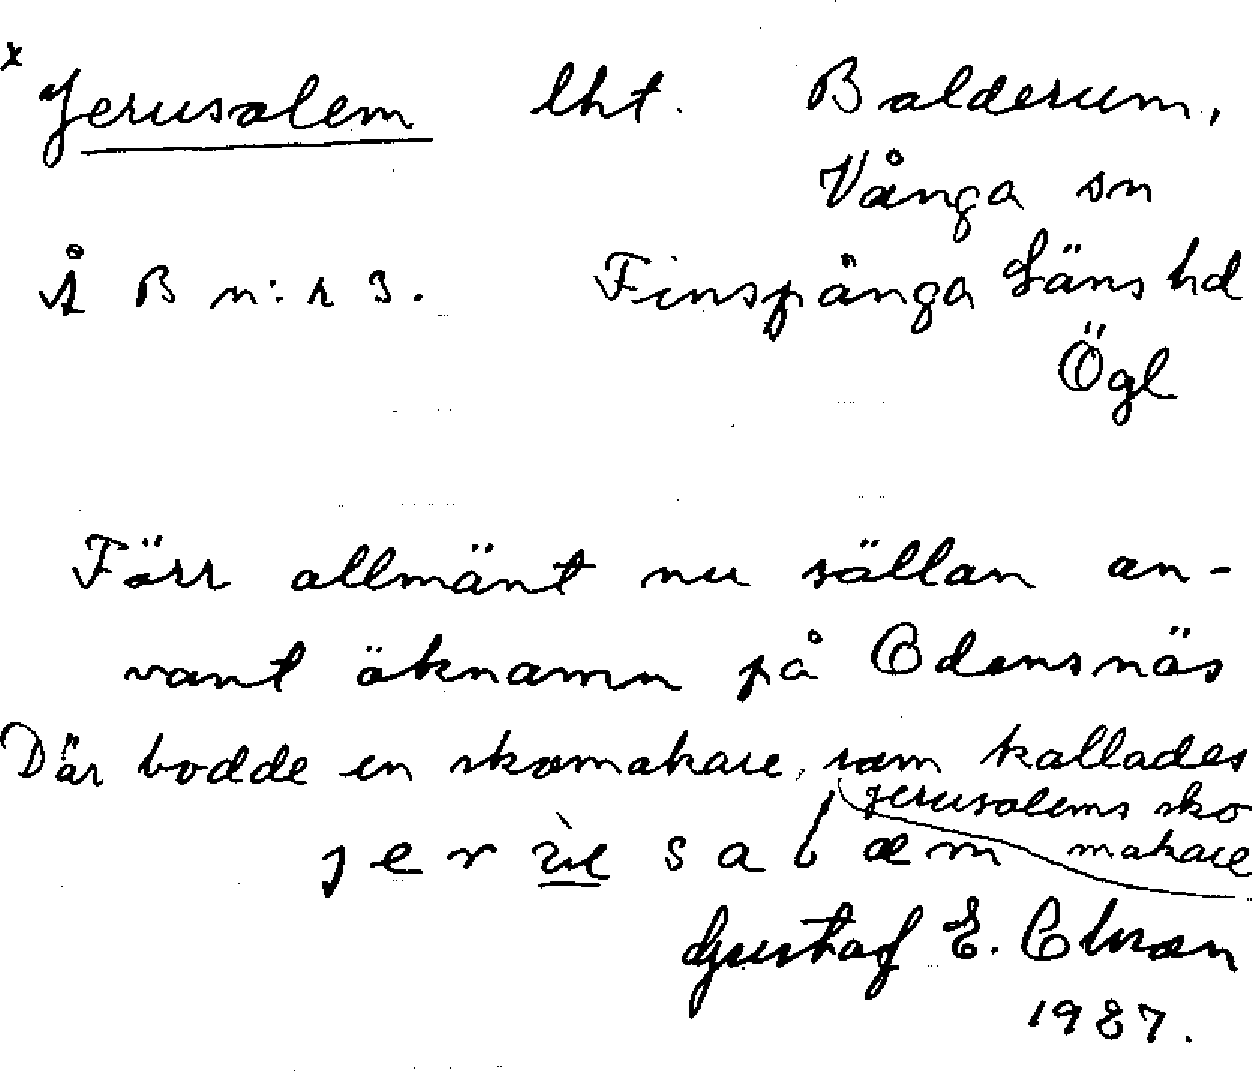 x Jerusalem lht. Balderum,
Vånga sn
Å B n:r 3. Finspånga Läns hd
Ögl
Förr allmänt nu sällan an-
vant öknamn på Odensnäs
Där bodde en skomakare, som kallades
Jerusalems sko
makare
Gustaf E.
1987.